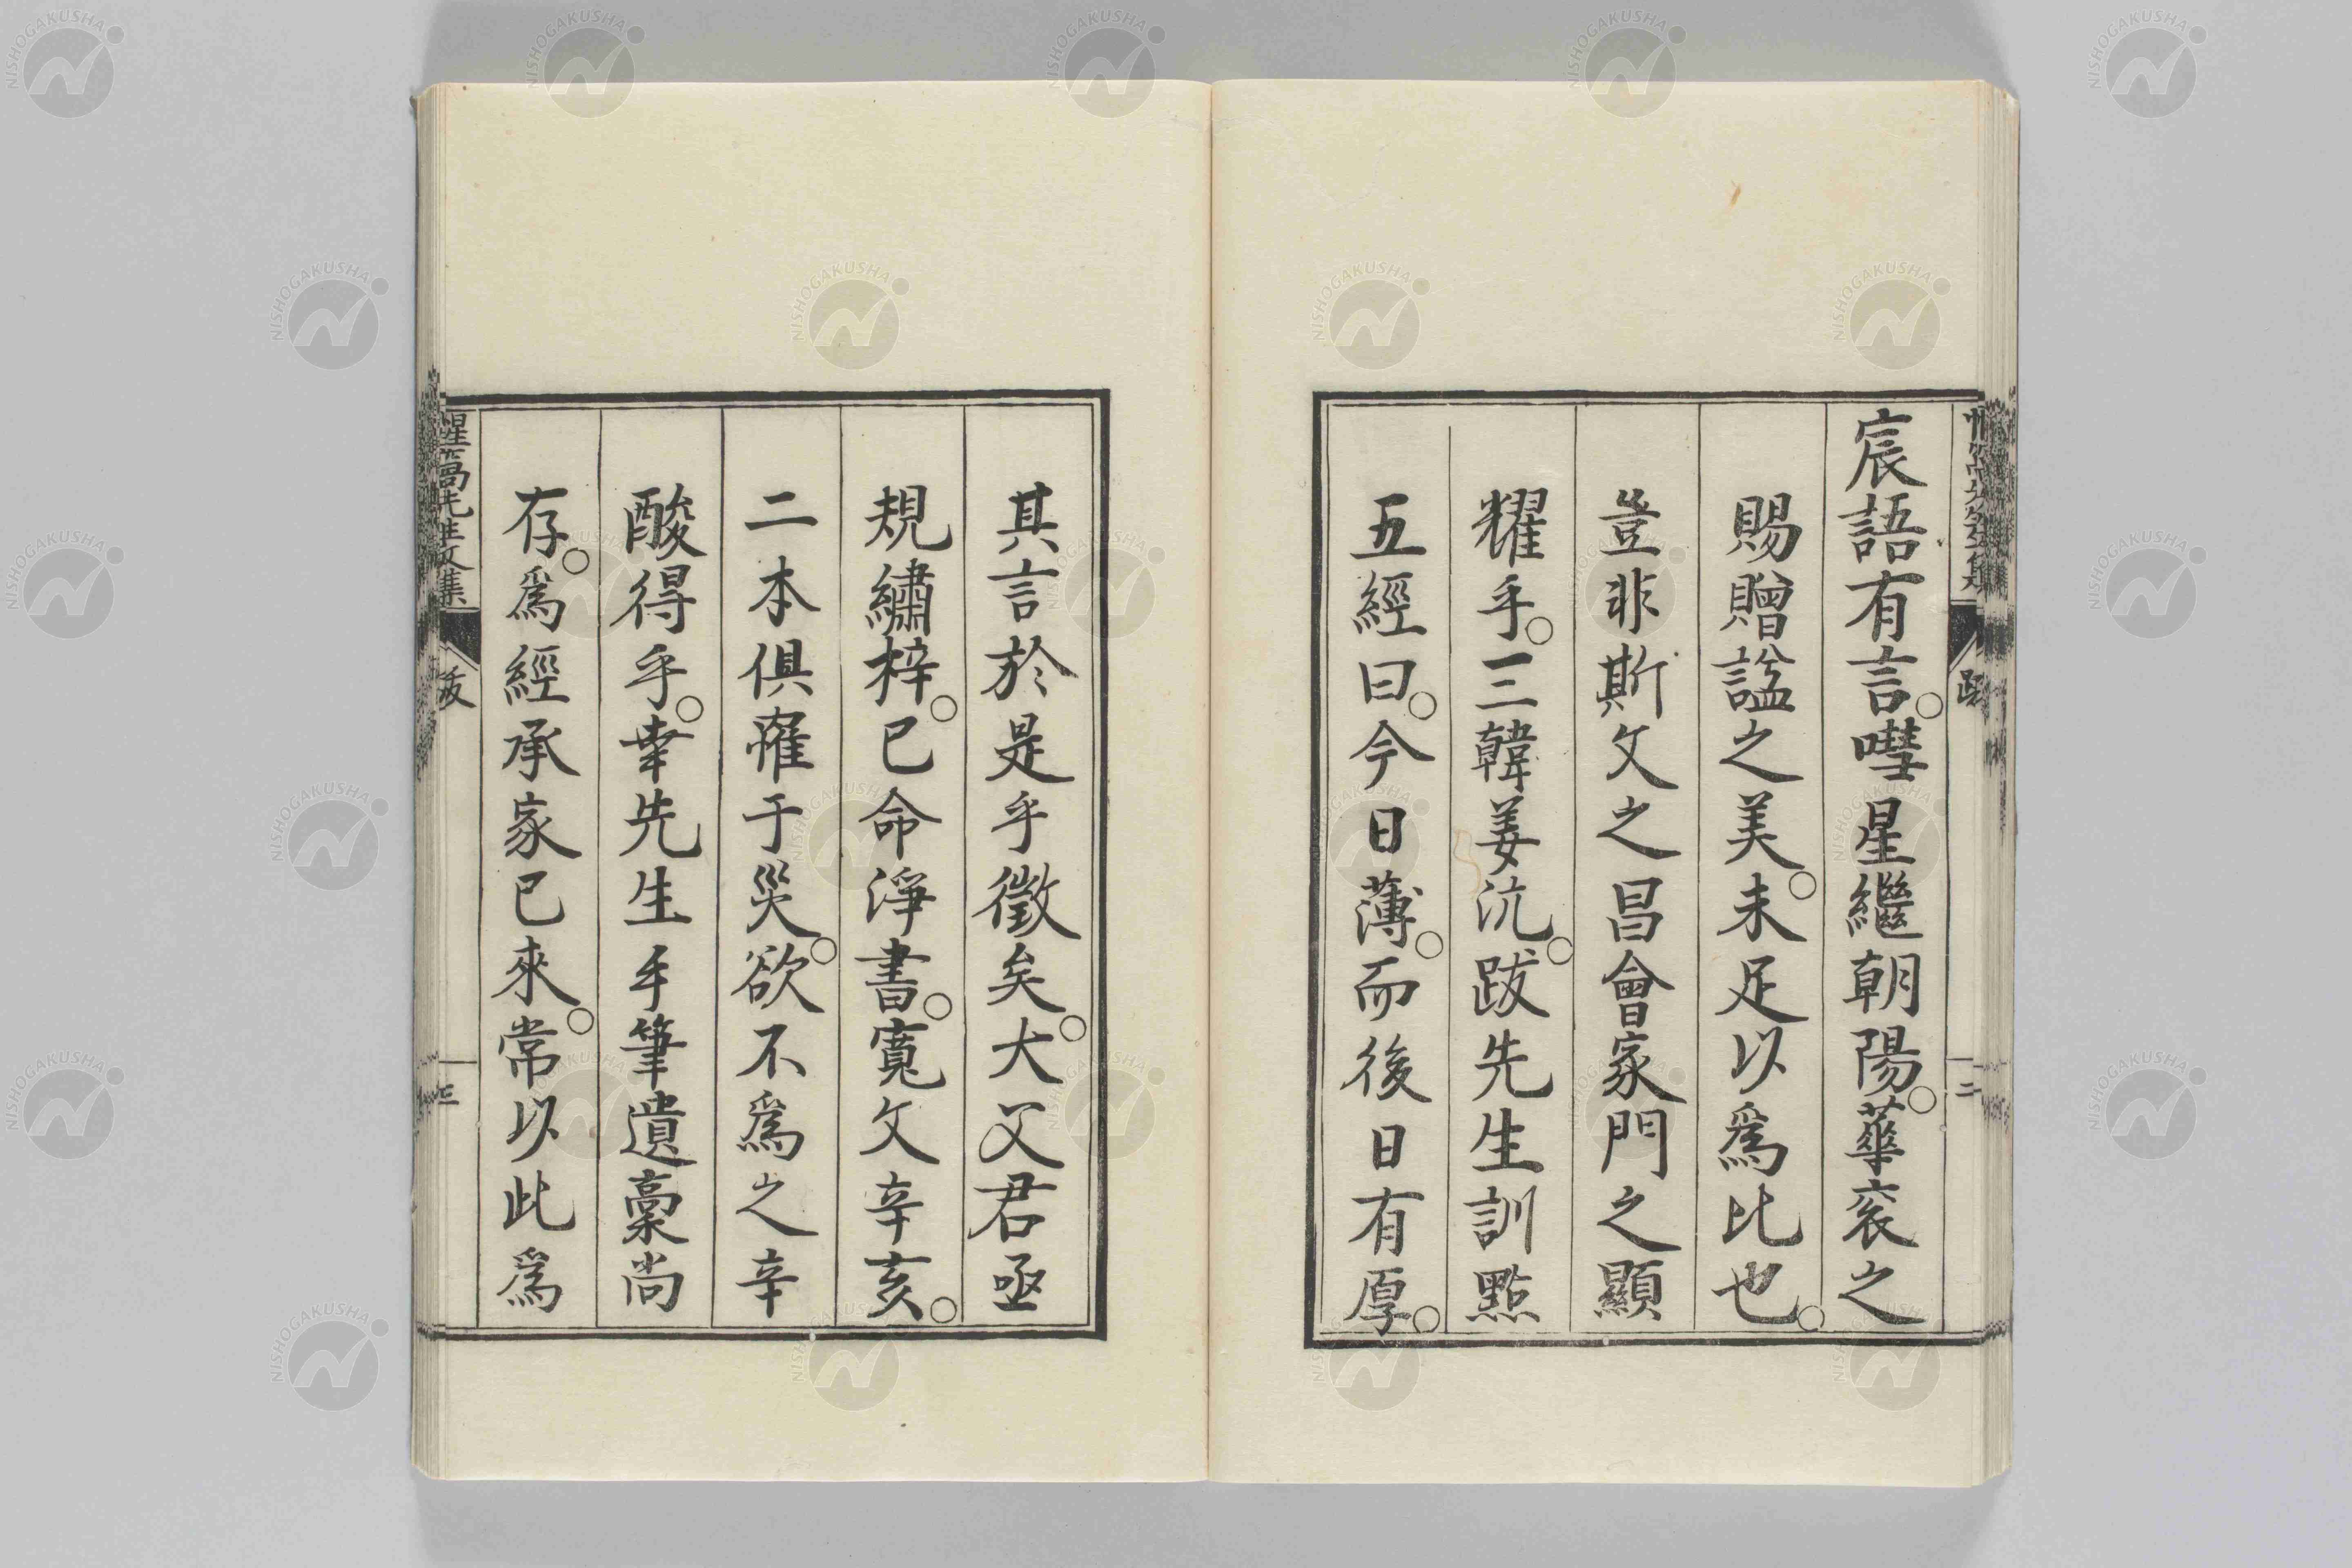 宸語有言。嘒星繼朝陽。華袞之
賜贈諡之美。未足以爲比也。
豈非斯文之昌會家門之顯
耀乎。三韓姜沆。跋先生訓點
五經曰。今日薄。而後日有厚。
其言於是乎徵矣。大父君亟
規繡梓。已命淨書。寬文辛亥。
二本俱罹于災。欲不爲之辛
酸得乎。幸先生手筆遺稾尚
存。爲經承家已來。常以此爲
惺窩先生文集
跋
二
三
NISHOGAKUSHA